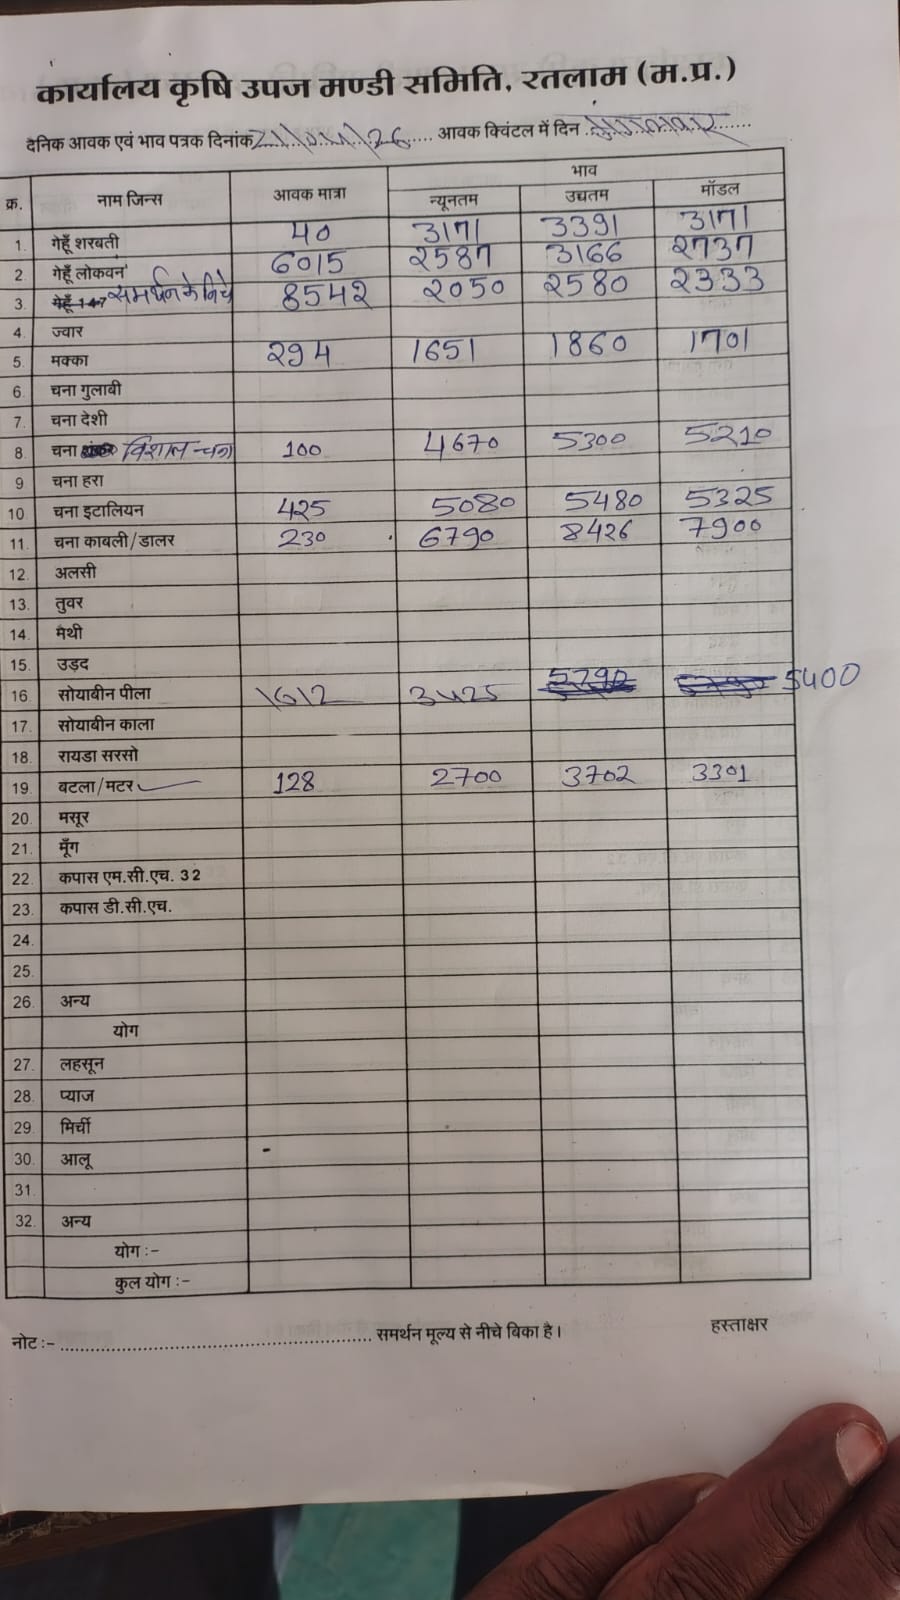 कार्यालय कृषि उपज मण्डी समिति, रतलाम (म.प्र.)
दैनिक आवक एवं भाव पत्रक दिनांक 21/04/26 आवक क्विंटल में दिन मंगलवार
क्र. नाम जिन्स आवक मात्रा भाव
न्यूनतम उच्चतम मॉडल
1. गेहूँ शरबती 40 3171 3391 3171
2 गेहूँ लोकवन 6015 2587 3166 2737
3. गेहूँ 147 समर्थन के निचे 8542 2050 2580 2333
4. ज्वार
5. मक्का 294 1651 1860 1701
6. चना गुलाबी
7. चना देशी
8. चना विशाल-चना 100 4670 5300 5210
9 चना हरा
10 चना इटालियन 425 5080 5480 5325
11. चना काबली/डालर 230 6790 8426 7900
12. अलसी
13. तुवर
14. मैथी
15. उड़द
16. सोयाबीन पीला 1612 3425 5400
17. सोयाबीन काला
18. रायडा सरसो
19. बटला/मटर 128 2700 3702 3301
20. मसूर
21. मूँग
22. कपास एम.सी.एच. 32
23. कपास डी.सी.एच.
24.
25.
26. अन्य
योग
27. लहसून
28. प्याज
29. मिर्ची
30. आलू -
31.
32. अन्य
योग :-
कुल योग :-
नोट :- ........................................................ समर्थन मूल्य से नीचे बिका है। हस्ताक्षर